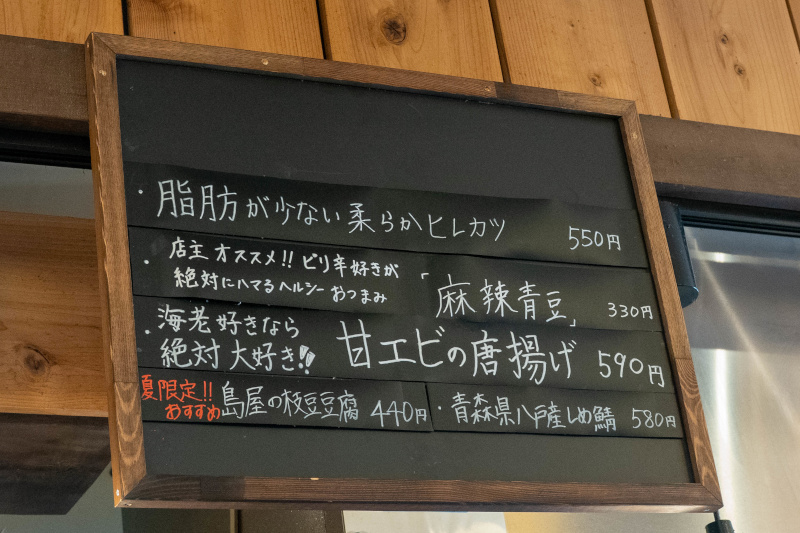 ・脂肪が少ない柔らかヒレカツ 550円
・店主オススメ!! ピリ辛好きが
絶対にハマるヘルシーおつまみ
「麻辣青豆」 330円
・海老好きなら
絶対大好き!!
甘エビの唐揚げ 590円
夏限定!!
おすすめ
島屋の枝豆豆腐 440円
・青森県八戸産しめ鯖 580円